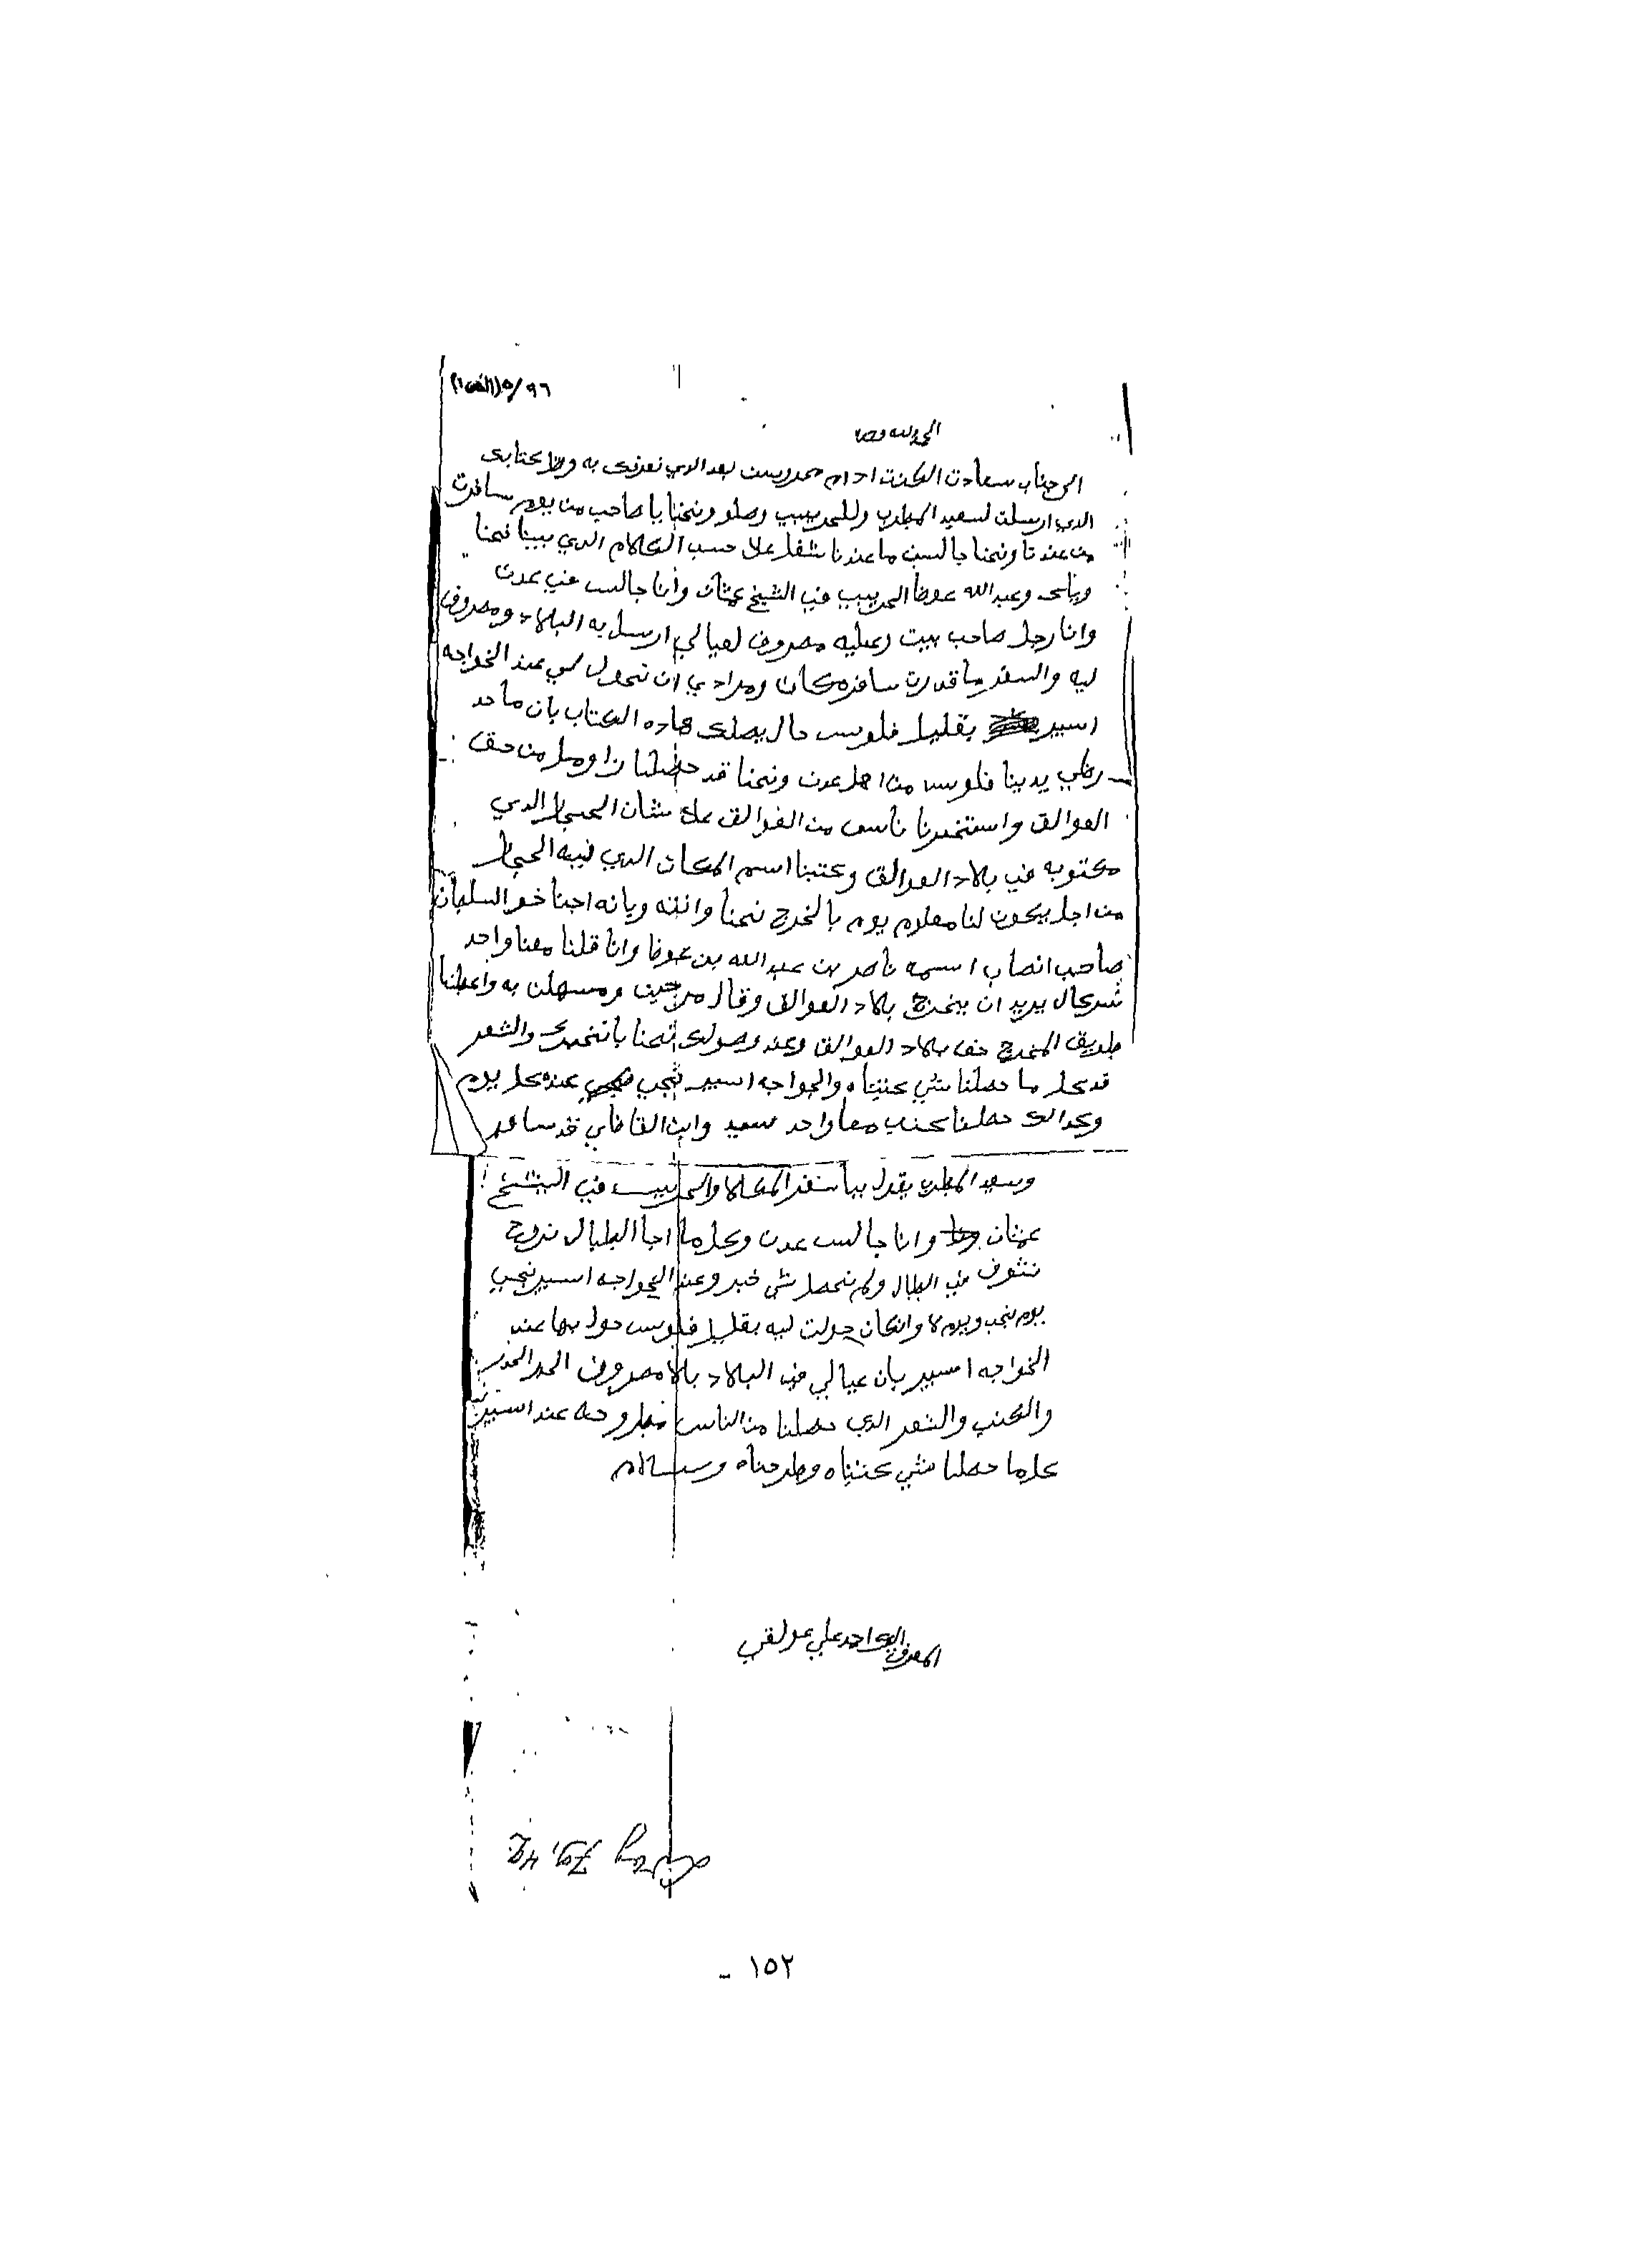 ٩٦/٥ (الف١)
الحمد لله وحده
الى جناب سعادت الكنت ادام محروس بعد الدي نعرفك به وصل كتابك
الدي ارسلت لسعيد المطرب وللحربيب وصلو ونحنا يا صاحب من يوم سافرت
من عندنا ونحنا جالسين ما عندنا شغل علا حسب الكلام الدي بيننا نحنا
وياك وعبدالله عوض الحربيب في الشيخ عثمان وأنا جالس في عدن
وانا رجل صاحب بيت وعليه مصروف لعيالي ارسل به البلاد ومصروف
ليه والسفر ما قدرت سافر مكان ومرادي ان تحول لي عند الخواجه
اسير بقليل فلوس حال يصلك هاده الكتاب بان ما حد
رضي يدينا فلوس من اهل عدن ونحنا قد حصلنا زامل من حق
العوالق واستخبرنا ناس من العوالق علا شان الحجار الدي
مكتوبه في بلاد العوالق وكتبنا اسم المكان الدي فيه الحجار
من اجل يكون لنا معلوم يوم بالخرج نحنا وانته وبانه اجنا خو السلطان
صاحب انصاب اسمه ناصر بن عبدالله بن عوض وانا قلنا معنا واحد
شريكال يريد ان يخرج بلاد العوالق وقال مرحبن ومسهلن به واعطنا
طريق المخرج حق بلاد العوالق وعند وصولك نحنا بانخبرك والشعر
قد كل ما حصلنا شي كتبناه والخواجه اسير نجي عنده كل يوم
وكدالك حصلنا كتب معا واحد سعيد وابن القاضي قد سافر
وسعيد المطرب يقول بياسفر المكلا والحربيب في الشيخ
عثمان وانا جالس عدن وكل ما اجا البطال نروح
نشوف في البطال ولم نحصل شي خبر وعند الخواجه اسير نجي
يوم نجي ويوم لا وانكان حولت ليه بقليل فلوس حول بها عند
الخواجه اسير بان عيالي في البلاد بلا مصروف الحدر الحدر
والكتب والشعر الدي حصلنا من الناس مطروحه عند اسير
كل ما حصلنا شي كتبناه وطرحناه وسلام
المعرف اليك احمد علي عولقي
١٥٢ -